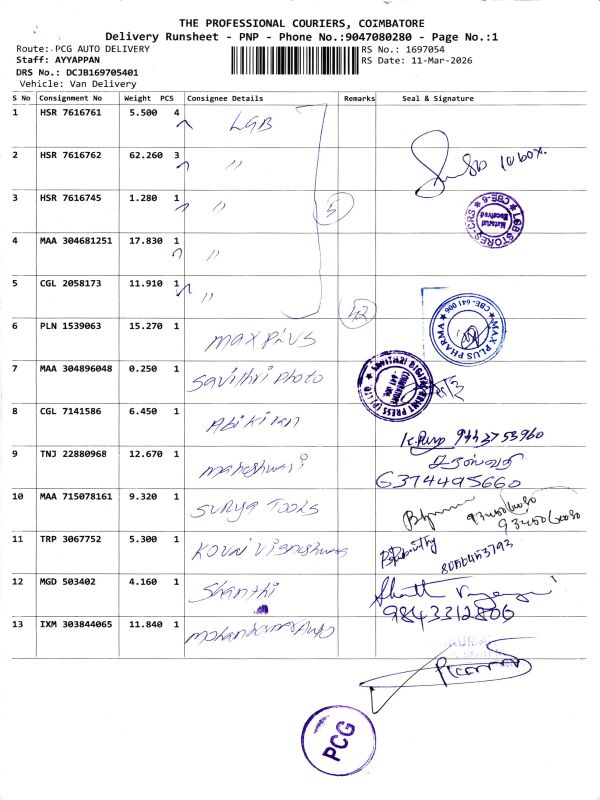 THE PROFESSIONAL COURIERS, COIMBATORE
Delivery Runsheet - PNP - Phone No.:9047080280 - Page No.:1
Route: PCG AUTO DELIVERY
RS No.: 1697054
Staff: AYYAPPAN
RS Date: 11-Mar-2026
DRS No.: DCJB169705401
Vehicle: Van Delivery
S No Consignment No Weight PCS Consignee Details Remarks Seal & Signature
1 HSR 7616761 5.500 4 LGB
2 HSR 7616762 62.260 3 "
10 box.
3 HSR 7616745 1.280 1 " 5
LGB STORES-CRS CBE-6 Material Received
4 MAA 304681251 17.830 1 "
5 CGL 2058173 11.910 1 "
42
MAX PLUS PHARMA CBE-641 006
6 PLN 1539063 15.270 1 Max Plus
7 MAA 304896048 0.250 1 Savithri Photo
SAVITHRI DIGITAL PRINT PRESS (P) LTD
8 CGL 7141586 6.450 1 Abikiran
9443753960
9 TNJ 22880968 12.670 1 Maheshwari
6374495660
10 MAA 715078161 9.320 1 Surya Tools
11 TRP 3067752 5.300 1 Kovai Vigneshwara
12 MGD 503402 4.160 1 Shanthi
9843312806
13 IXM 303844065 11.840 1
PCG